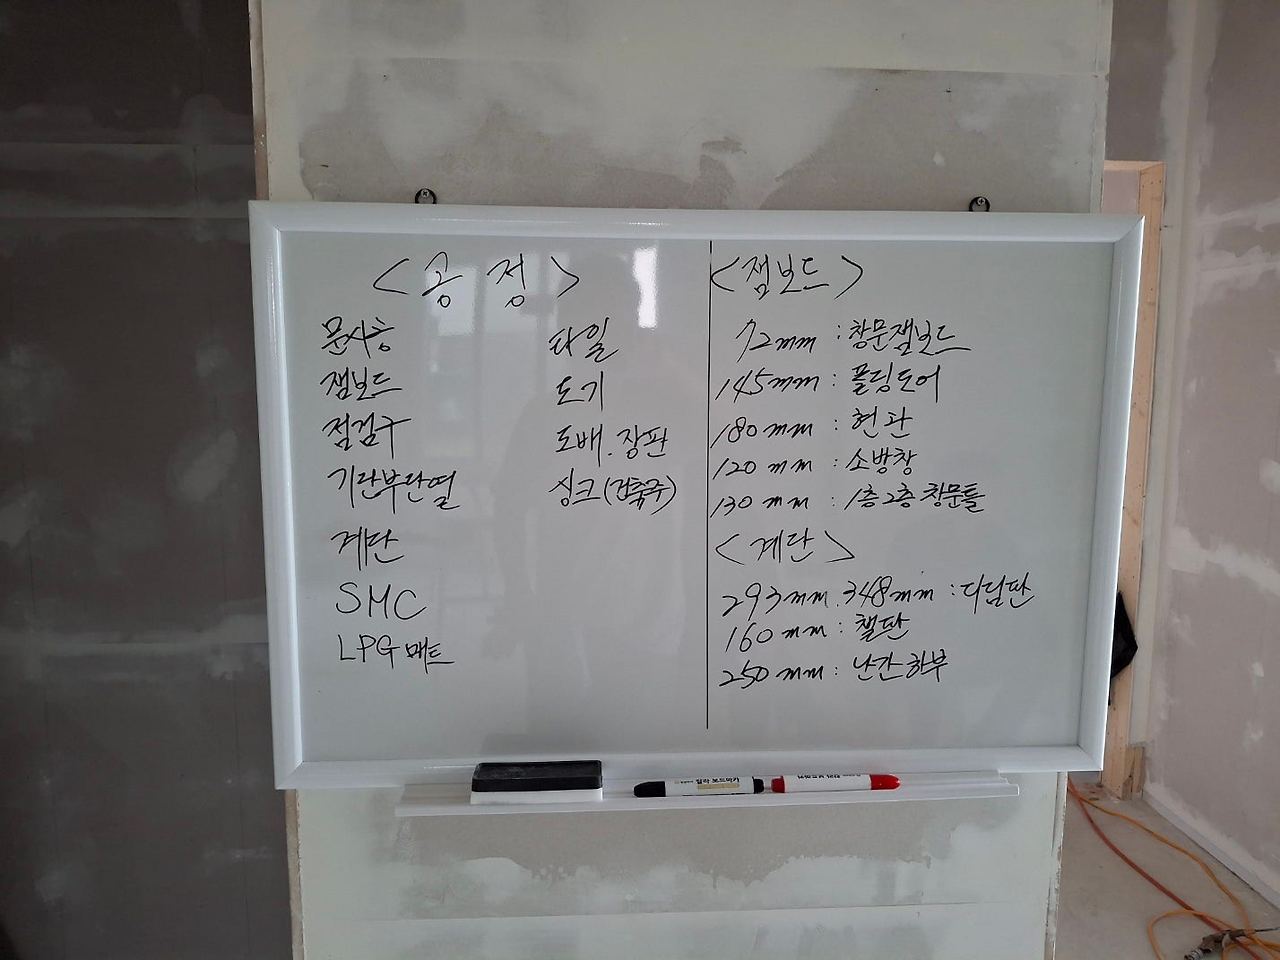 <공정>
문사춤
잼보드
점검구
기단부단열
계단
SMC
LPG 매트
타일
도기
도배.장판
싱크(건축주)
<잼보드>
72mm : 창문잼보드
145mm : 폴딩도어
180mm : 현관
120mm : 소방창
130mm : 1층2층 창문틀
<계단>
293mm.348mm : 디딤판
160mm : 챌판
250mm : 난간하부
보드마카